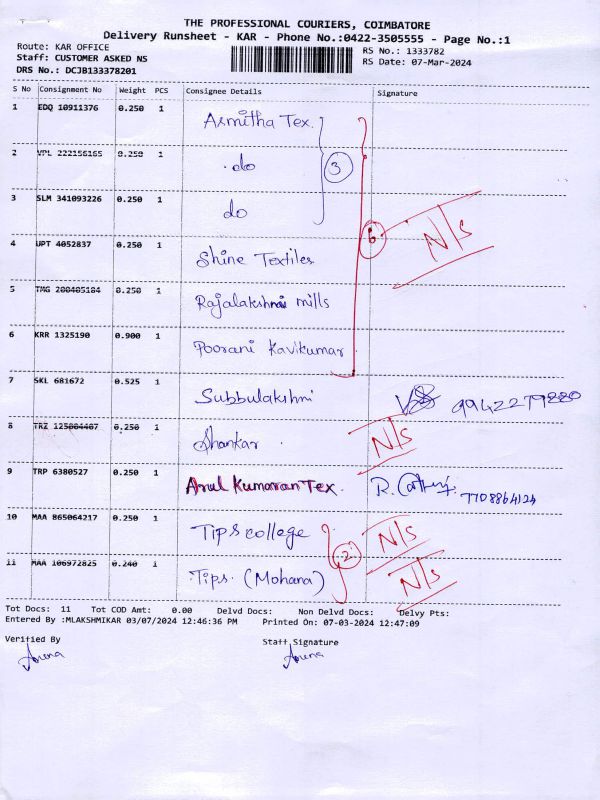 THE PROFESSIONAL COURIERS, COIMBATORE
Delivery Runsheet - KAR - Phone No.:0422-3505555 - Page No.:1
Route: KAR OFFICE
Staff: CUSTOMER ASKED NS
DRS No.: DCJB133378201
RS No.: 1333782
RS Date: 07-Mar-2024
S No Consignment No Weight PCS Consignee Details Signature
1 EDQ 10911376 0.250 1 Asmitha Tex.
2 VPL 222156165 0.250 1 do
3
3 SLM 341093226 0.250 1 do
6 N/S
4 UPT 4052837 0.250 1 Shine Textiles
5 TMG 200405184 0.250 1 Rajalakshmi mills
6 KRR 1325190 0.900 1 Poorani Kavikumar
7 SKL 681672 0.525 1 Subbulakshmi 9942279880
8 TRZ 0.250 1 Shankar. N/S
9 TRP 6380527 0.250 1 Arul Kumaran Tex. 7708864124
10 MAA 865064217 0.250 1 Tips college N/S
2
11 MAA 106972825 0.240 1 Tips. (Mohana) N/S
Tot Docs: 11 Tot COD Amt: 0.00 Delvd Docs: Non Delvd Docs: Delvy Pts:
Entered By :MLAKSHMIKAR 03/07/2024 12:46:36 PM Printed On: 07-03-2024 12:47:09
Verified By Staff Signature
Aruna Aruna